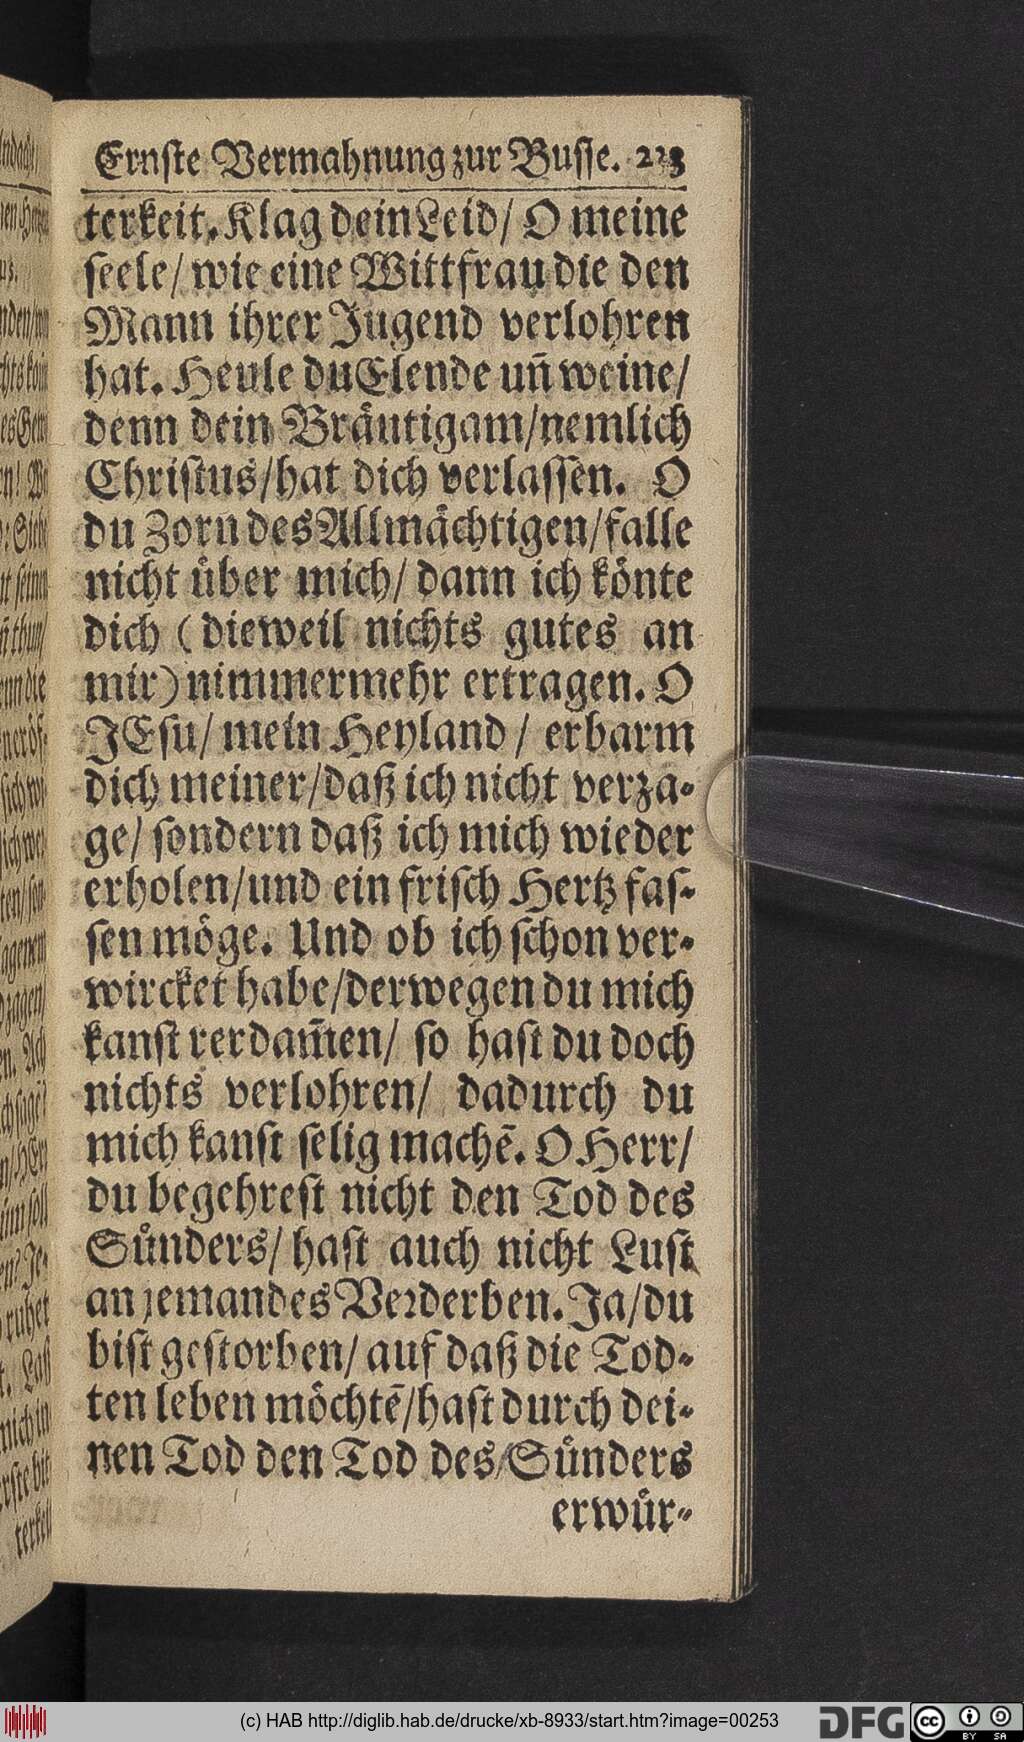 Ernste Vermahnung zur Busse. 223
terkeit. Klag dein Leid/ O meine
seele/ wie eine Wittfrau die den
Mann ihrer Jugend verlohren
hat. Heule du Elende uñ weine/
denn dein Bräutigam/nemlich
Christus/hat dich verlassen. O
du Zorn des Allmächtigen/falle
nicht über mich/ dann ich könte
dich (dieweil nichts gutes an
mir) nimmermehr ertragen. O
JEsu/ mein Heyland/ erbarm
dich meiner/daß ich nicht verza-
ge/ sondern daß ich mich wieder
erholen/und ein frisch Hertz fas-
sen möge. Und ob ich schon ver-
wircket habe/derwegen du mich
kanst rerdam̃en/ so hast du doch
nichts verlohren/ dadurch du
mich kanst selig machẽ. O Herr/
du begehrest nicht den Tod des
Sünders/ hast auch nicht Lust
an jemandes Verderben. Ja/du
bist gestorben/ auf daß die Tod-
ten leben möchtẽ/hast durch dei-
nen Tod den Tod des/Sünders
erwür-
(c) HAB http://diglib.hab.de/drucke/xb-8933/start.htm?image=00253
DFG
cc
BY SA